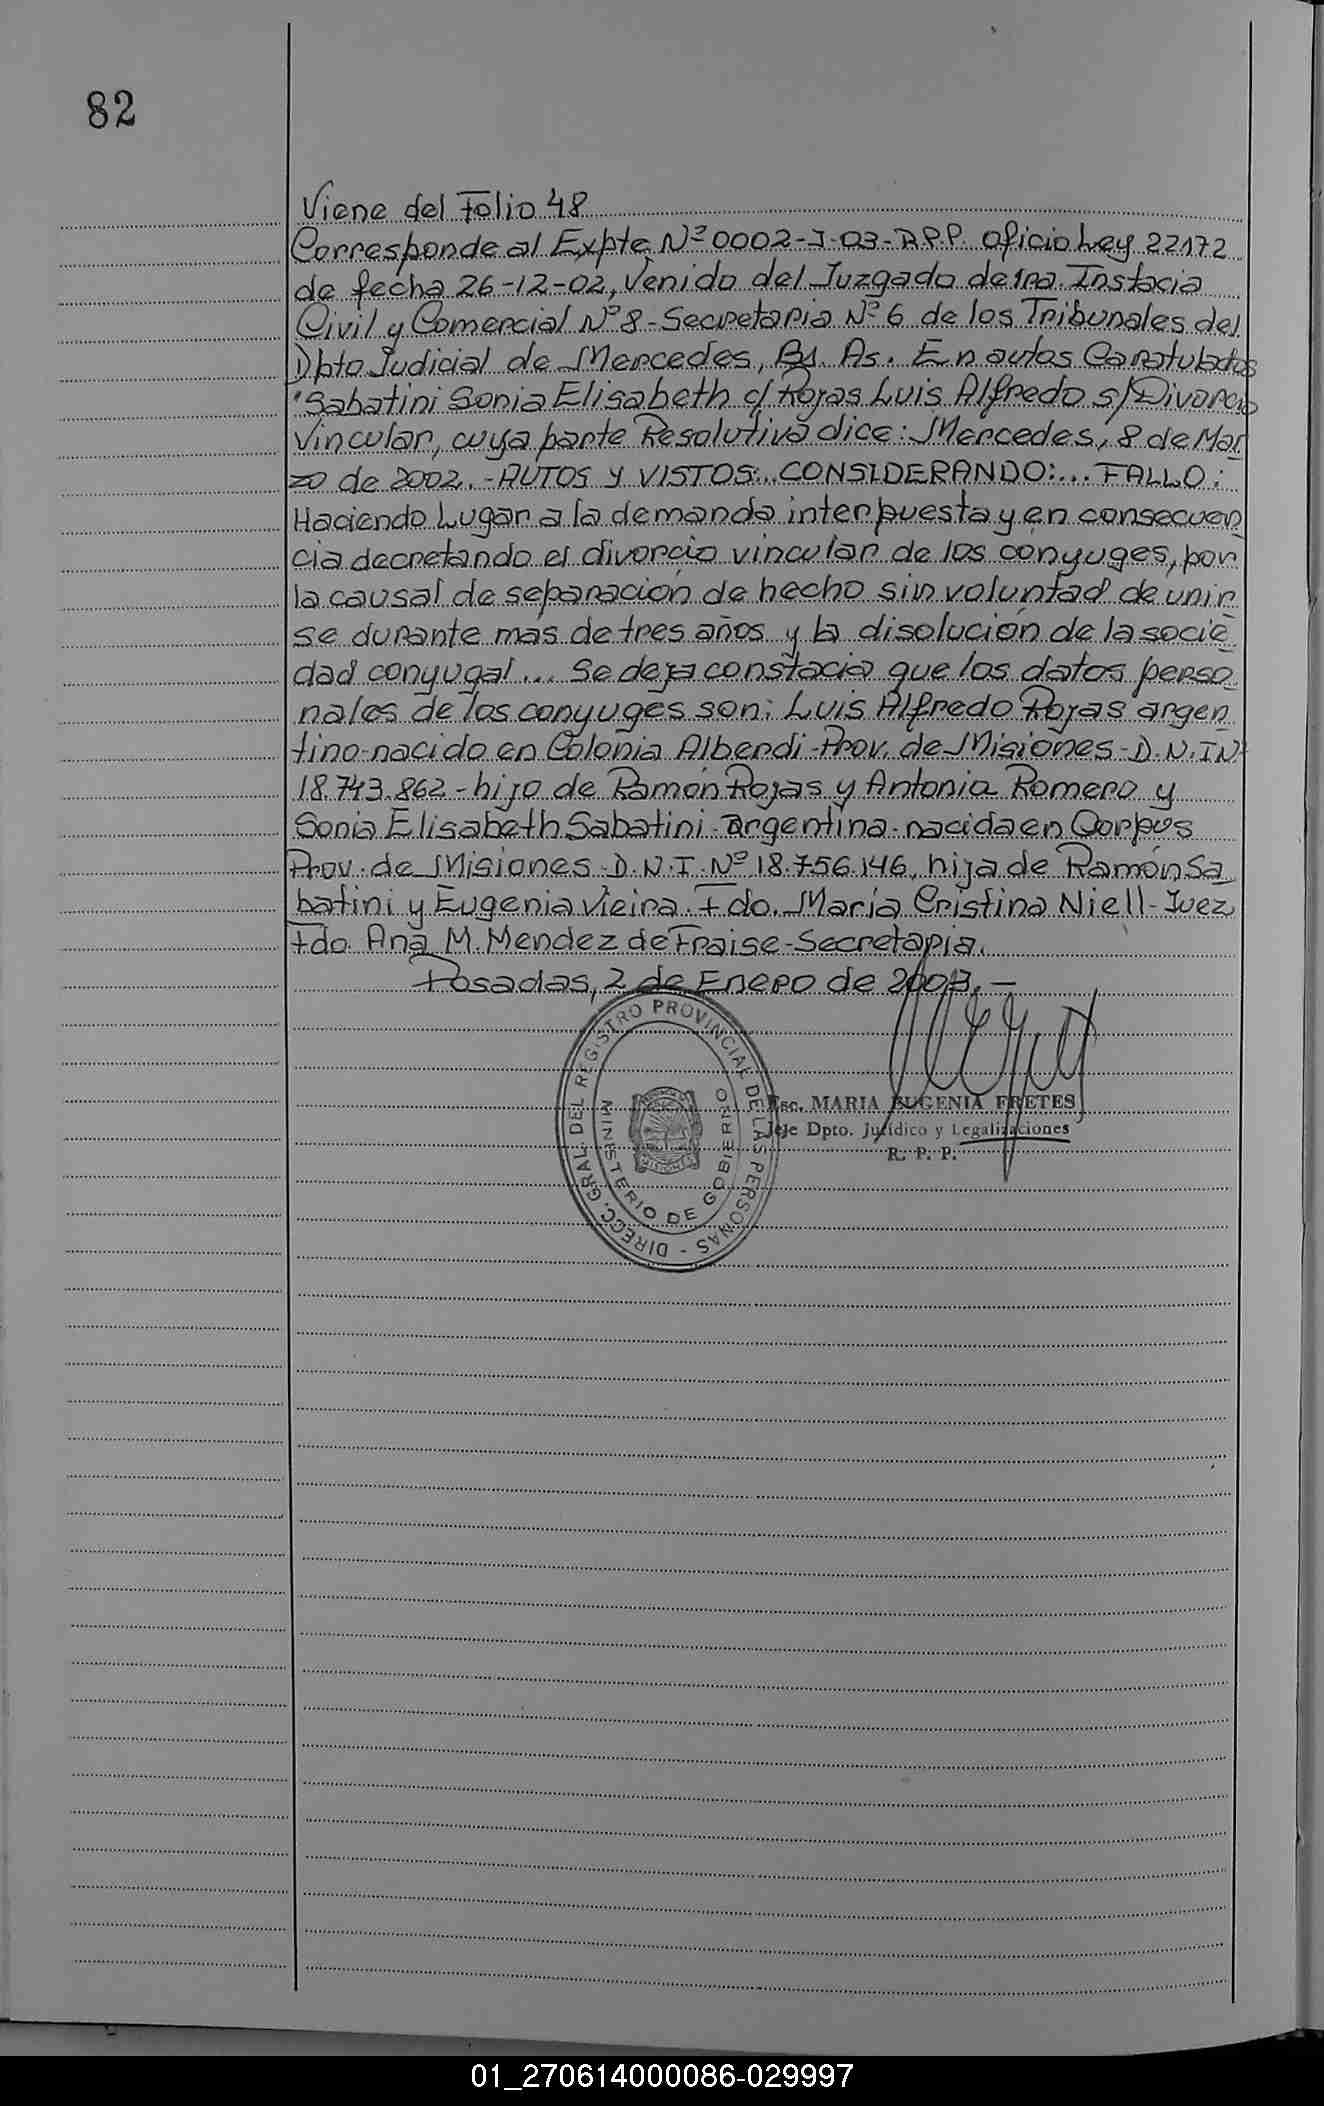 82
Viene del Folio 48
Corresponde al Expte Nº 0002-J-03-R.P.P. oficio Ley 22172
de fecha 26-12-02, Venido del Juzgado de 1ra. Instacia
Civil y Comercial Nº 8 - Secretaria Nº 6 de los Tribunales del
Dpto Judicial de Mercedes, Bs. As. En autos Caratulados
"Sabatini Sonia Elisabeth c/ Rojas Luis Alfredo s/ Divorcio
Vincular, cuya parte Resolutiva dice: Mercedes, 8 de Mar
zo de 2002. - AUTOS Y VISTOS:.. CONSIDERANDO:... FALLO:
Haciendo Lugar a la demanda interpuesta y en consecuen
cia decretando el divorcio vincular de los cónyuges, por
la causal de separación de hecho sin voluntad de unir
se durante mas de tres años y la disolución de la socie
dad conyugal... Se deja constacia que los datos perso
nales de los conyuges son: Luis Alfredo Rojas argen
tino-nacido en Colonia Alberdi-Prov. de Misiones-D.N.I Nº
18.743.862 - hijo de Ramón Rojas y Antonia Romero y
Sonia Elisabeth Sabatini-argentina-nacida en Corpus
Prov. de Misiones-D.N.I.Nº 18.756.146, hija de Ramón Sa
batini y Eugenia Vieira. Fdo. María Cristina Niell-Juez
Fdo. Ana M. Mendez de Fraise-Secretaria.
Posadas, 2 de Enero de 2003.-
DIRECC. GRAL. DEL REGISTRO PROVINCIAL DE LAS PERSONAS -
MINISTERIO DE GOBIERNO
MISIONES
Esc. MARIA EUGENIA FRETES
Jefe Dpto. Jurídico y Legalizaciones
R. P. P.
01_270614000086-029997